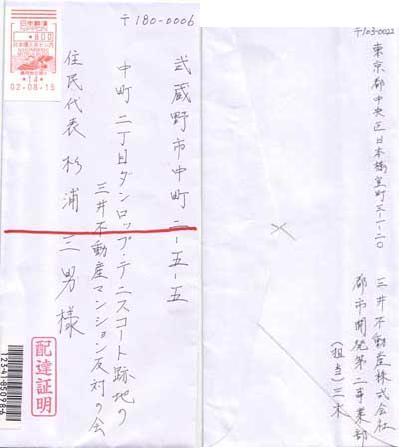 日本郵便
NIPPON
*800
*14*
02-08-15
〒180-0006
武蔵野市中町二-五-五
中町二丁目ダンロップ・テニスコート跡地の
三井不動産マンション反対の会
住民代表 杉浦三男様
配達証明
〒103-0022
東京都中央区日本橋室町三-一-二〇
三井不動産株式会社
都市開発第二事業部
(担当)三木